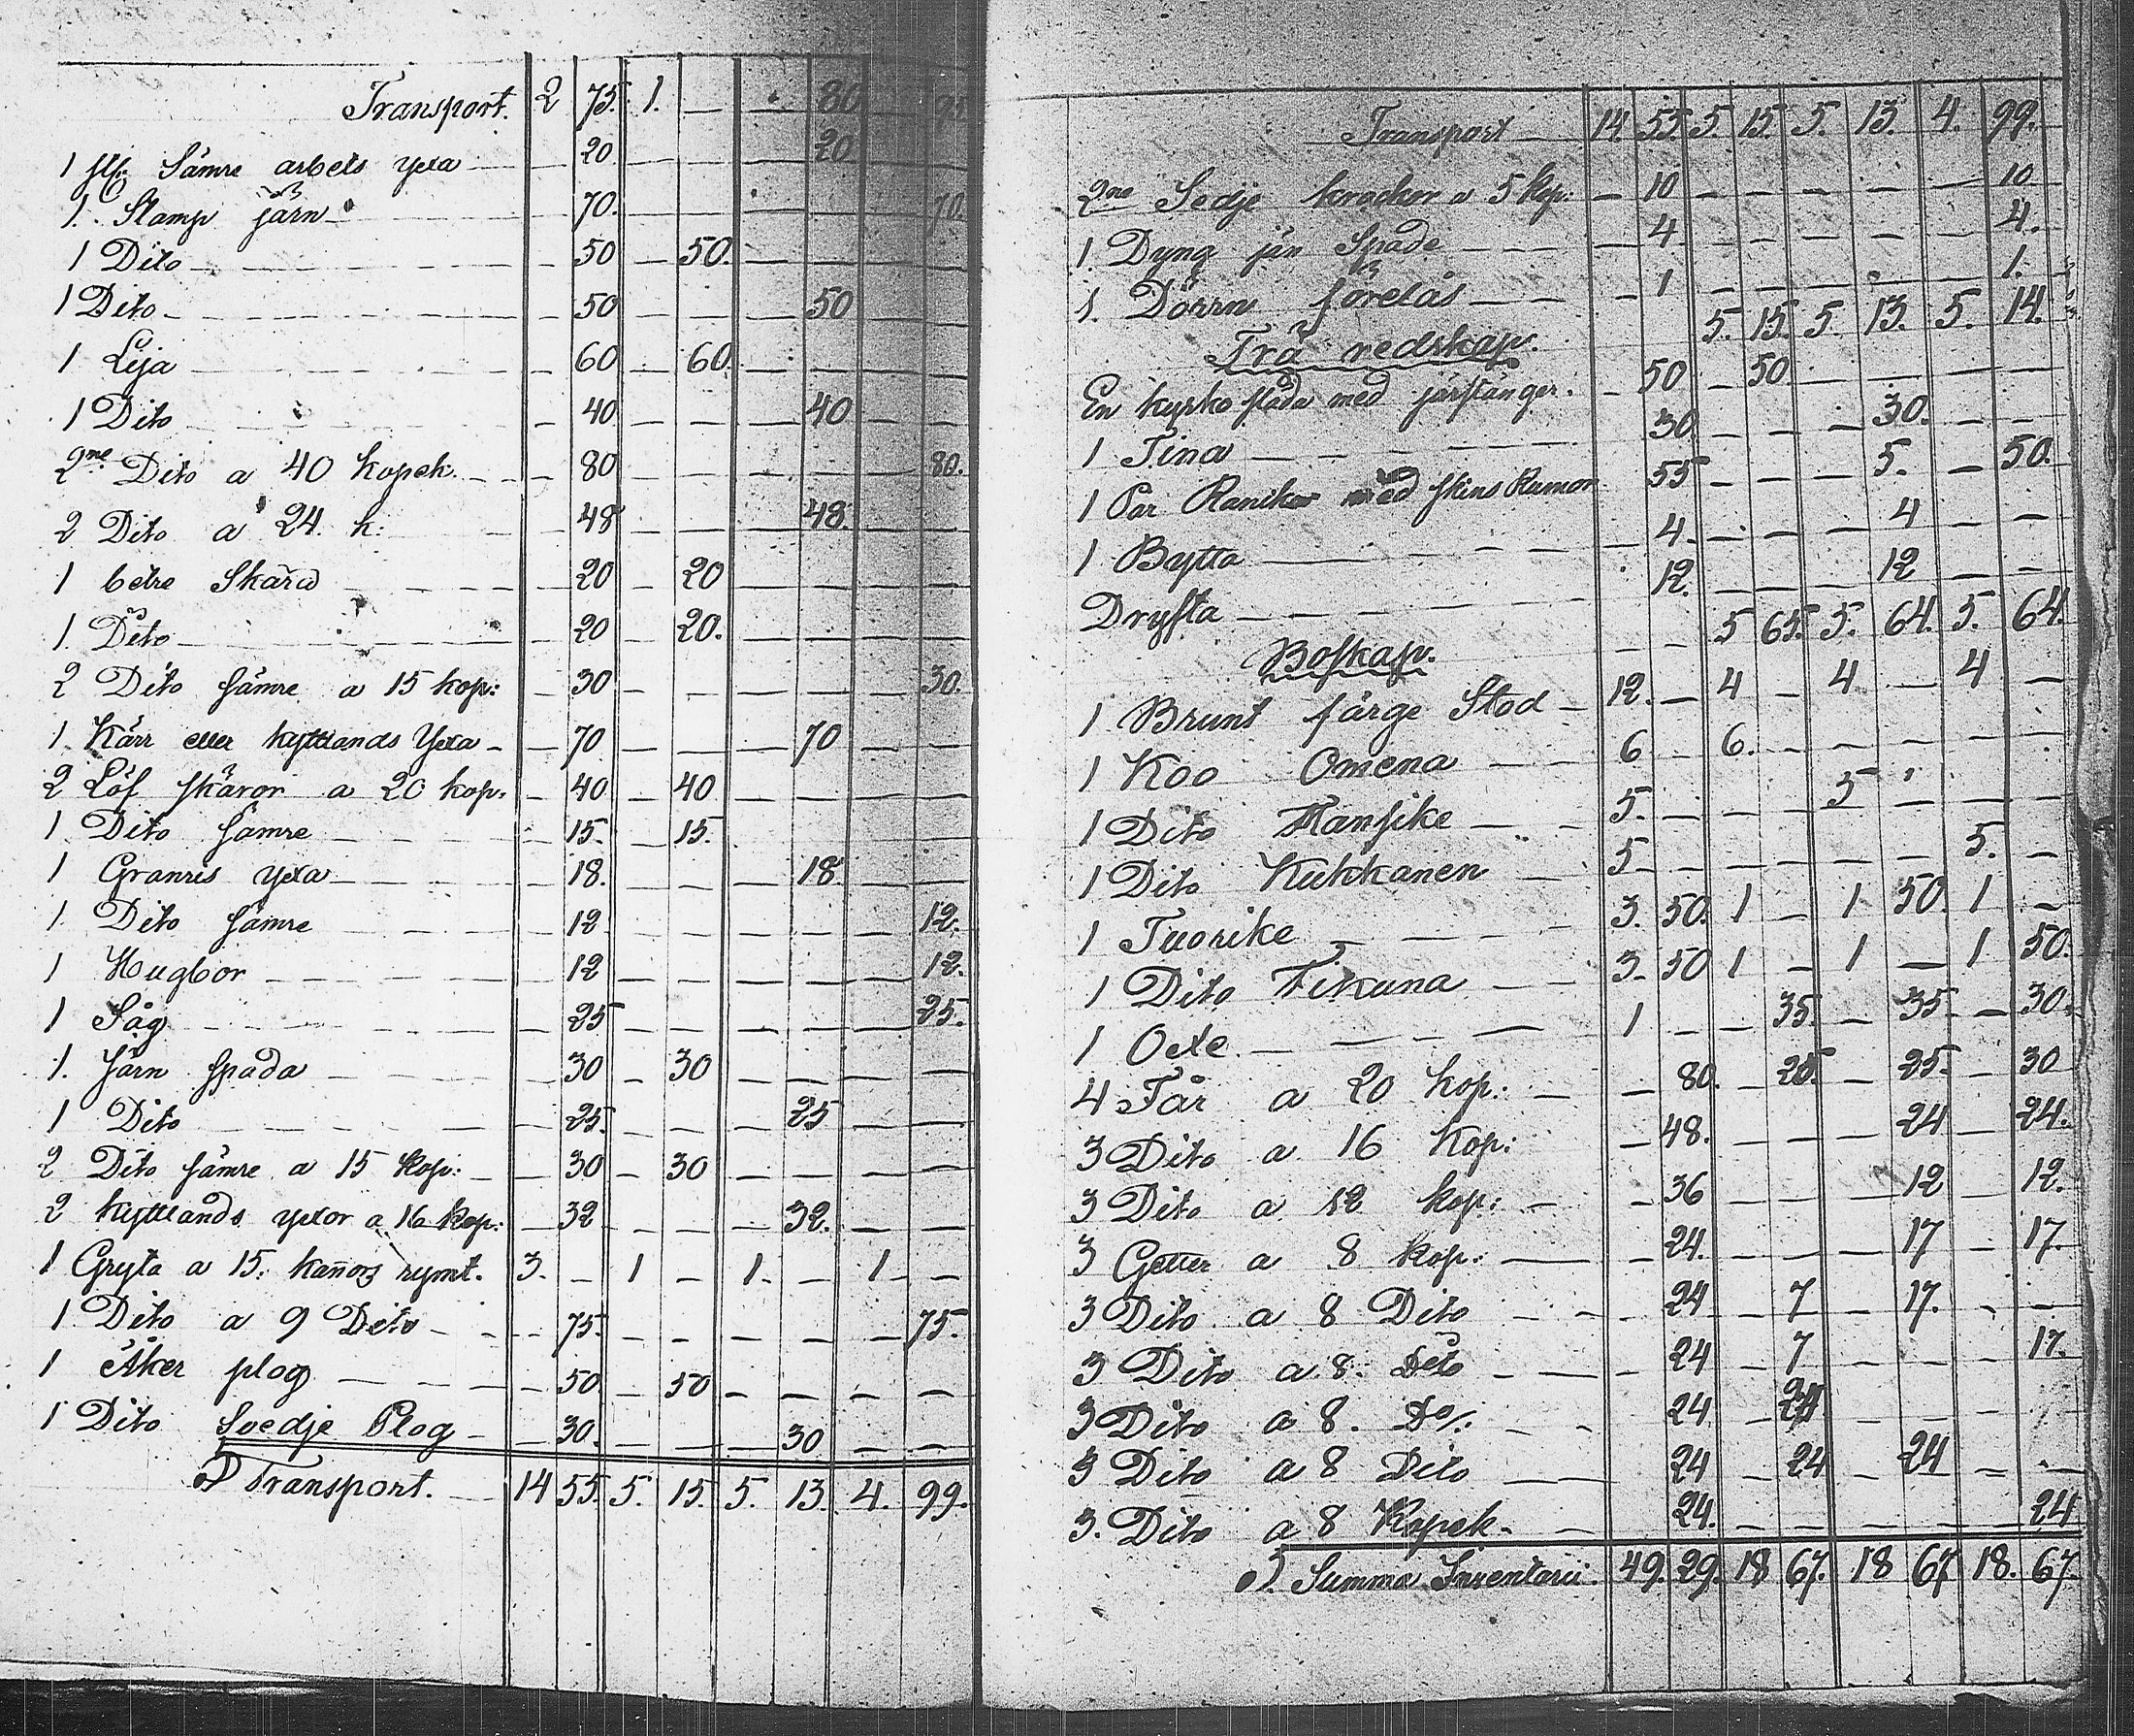 Transport. 2 75. 1. — — 80 — 95
1 st: Sämre arbets yxa — 20 — — — 20 — —
1. Stamp järn — 70. — — — — — 70.
1 Dito — 50 — 50. — — — —
1 Dito — 50 — — — 50 — —
1 Lija — 60 — 60. — — — —
1 Dito — 40 — — — 40 — —
2ne Dito a 40 kopek. — 80 — — — — — 80.
2 Dito a 24. k: — 48 — — — 48. — —
1 betre Skära — 20 — 20 — — — —
1. Dito — 20 — 20. — — — —
2 Dito sämre a 15 kop: — 30 — — — — — 30.
1. Kärr eller kyttlands Yxa — — 70 — — — 70 — —
2 Löf skäror a 20 kop. — 40 — 40 — — — —
1 Dito sämre — 15. — 15. — — — —
1 Granris yxa — 18. — — — 18 — —
1. Dito sämre — 12 — — — — — 12.
1 Hugbor — 12 — — — — — 12.
1 Såg — 25 — — — — — 25.
1. Järn spada — 30 — 30 — — — —
1 Dito — 25. — — — 25 — —
2 Dito sämre a 15 kop: — 30 — 30 — — — —
2 kyttlands yxor a 16 kop: — 32 — — — 32. — —
1 Gryta a 15: kañors rymt. 3. — 1 — 1. — 1 —
1. Dito a 9 Dito — 75. — — — — — 75.
1 Åker plog — 50 — 50 — — — —
1 Dito Svedje Plog — 30. — — — 30 — —
Transport. 14 55. 5. 15. 5. 13. 4. 99.
Transport 14 55. 5 15. 5. 13. 4. 99.
2ne Sedje krackor a 5 kop: — 10 — — — — — 10
1. Dyng jän Spade — 4 — — — — — 4.
1. Dörrn förelås — 1 — — — — — 1.
5. 15. 5. 13. 5. 14.
Trä redskap.
En kyrko släda med järstänger. — 50 — 50 — — — —
1 Tina — 30 — — — 30. — —
1 Par Rankor med skins Rumor 55 — — — 5. — 50.
1 Bytta — 4. — — — 4 — —
Dryfta — 12. — — — 12 — —
— — 5 65. 5. 64. 5. 64.
Boskap.
1 Brunt färge Stod — 12. — 4 — 4 — 4 —
1 Koo Omena — 6 — 6. — — — — —
1 Dito Mansike — 5. — — — 5 — — —
1 Dito Kukkanen — 5 — — — — — 5. —
1 Tuorike 3. 50. 1 — 1 50. 1 —
1 Dito Tikuna 3. 50 1 — 1 — 1 50.
1 Oxe. — 1 — — 35. — 35. — 30.
4 Får a 20 kop: — 80. — 25. — 25. — 30
3 Dito a 16 kop: — 48. — — — 24 — 24.
3 Dito a 12 kop: — 36 — — — 12 — 12.
3 Getter a 8 kop: — 24. — — — 17 — 17.
3 Dito a 8 Dito — 24 — 7 — 17. — —
3 Dito a 8: Dito — 24 — 7 — — — 17.
3 Dito a 8. Do/: — 24 — 24 — — — —
3 Dito a 8 Dito — 24 — 24 — 24 — —
3. Dito a 8 Kopek. — 24. — — — — — 24
Summa Inventarii: 49. 29. 18 67. 18 67 18. 67.